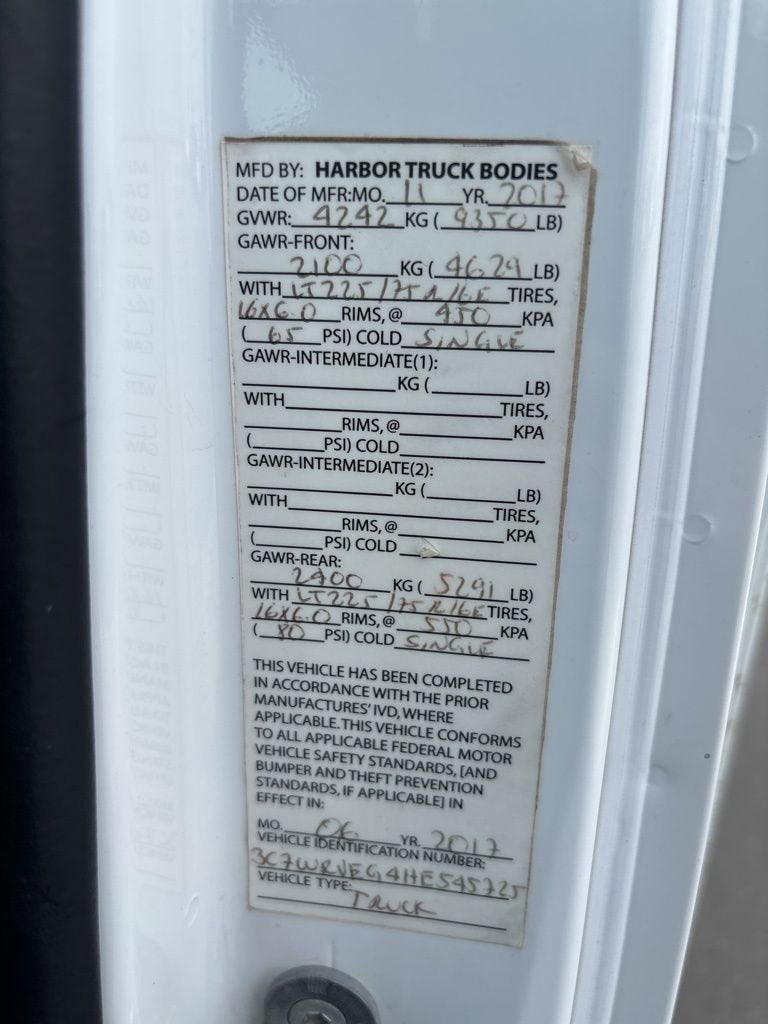 MFD BY: HARBOR TRUCK BODIES
DATE OF MFR:MO. 11 YR. 2017
GVWR: 4242 KG ( 9350 LB)
GAWR-FRONT:
2100 KG ( 4629 LB)
WITH LT225/75R/16E TIRES,
16X6.0 RIMS, @ 450 KPA
( 65 PSI) COLD SINGLE
GAWR-INTERMEDIATE(1):
KG ( LB)
WITH TIRES,
RIMS, @ KPA
( PSI) COLD
GAWR-INTERMEDIATE(2):
KG ( LB)
WITH TIRES,
RIMS, @ KPA
( PSI) COLD
GAWR-REAR:
2400 KG ( 5291 LB)
WITH LT225/75R/16E TIRES,
16X6.0 RIMS, @ 550 KPA
( 80 PSI) COLD SINGLE
THIS VEHICLE HAS BEEN COMPLETED
IN ACCORDANCE WITH THE PRIOR
MANUFACTURES' IVD, WHERE
APPLICABLE. THIS VEHICLE CONFORMS
TO ALL APPLICABLE FEDERAL MOTOR
VEHICLE SAFETY STANDARDS, [AND
BUMPER AND THEFT PREVENTION
STANDARDS, IF APPLICABLE] IN
EFFECT IN:
MO. 06 YR. 2017
VEHICLE IDENTIFICATION NUMBER:
3C7WRVEG4HE545725
VEHICLE TYPE:
TRUCK